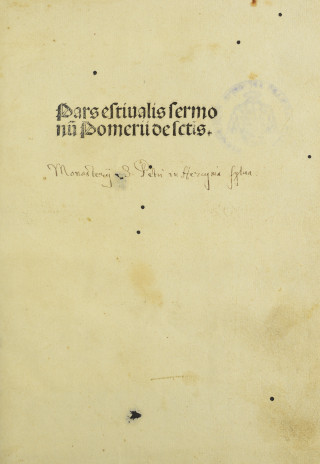 Pars estiualis sermo
nū Pomerii de sctis.
Monasterij S. Petri in Hercynia sylva.